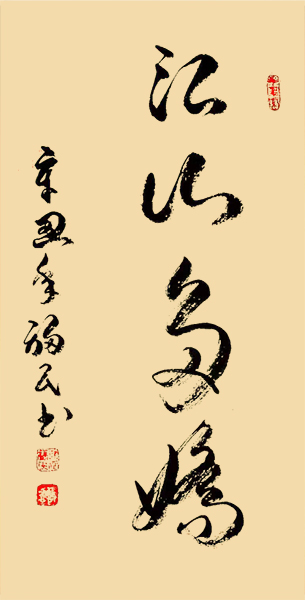 江山多娇
辛丑年福民书